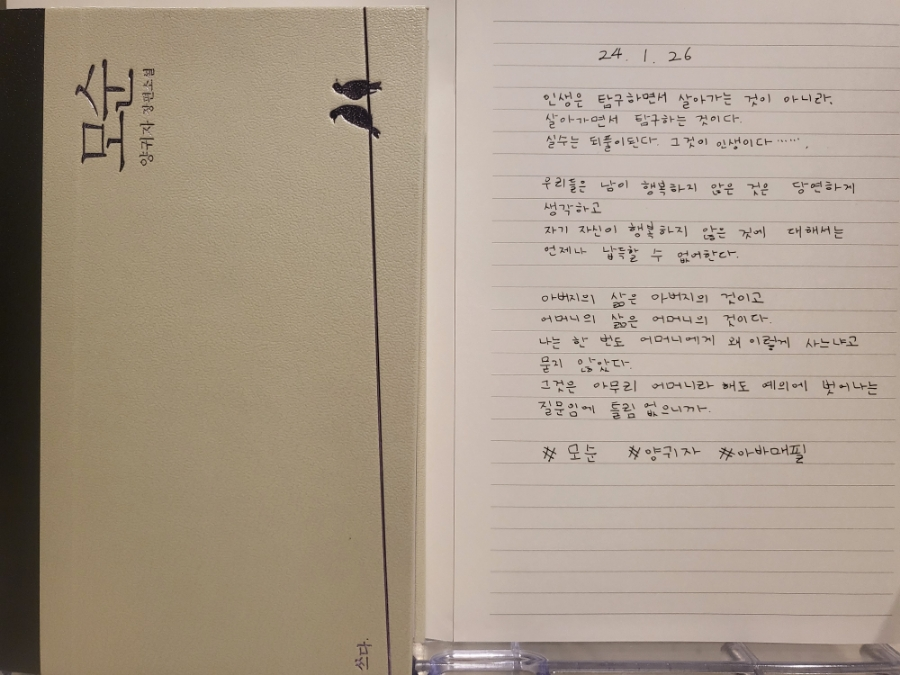 모순
양귀자 장편소설
쓰다.
24. 1. 26
인생은 탐구하면서 살아가는 것이 아니라,
살아가면서 탐구하는 것이다.
실수는 되풀이된다. 그것이 인생이다‥‥‥.
우리들은 남이 행복하지 않은 것은 당연하게
생각하고
자기 자신이 행복하지 않은 것에 대해서는
언제나 납득할 수 없어한다.
아버지의 삶은 아버지의 것이고
어머니의 삶은 어머니의 것이다.
나는 한 번도 어머니에게 왜 이렇게 사느냐고
묻지 않았다.
그것은 아무리 어머니라 해도 예의에 벗어나는
질문임에 틀림 없으니까.
# 모순 #양귀자 #아바매필